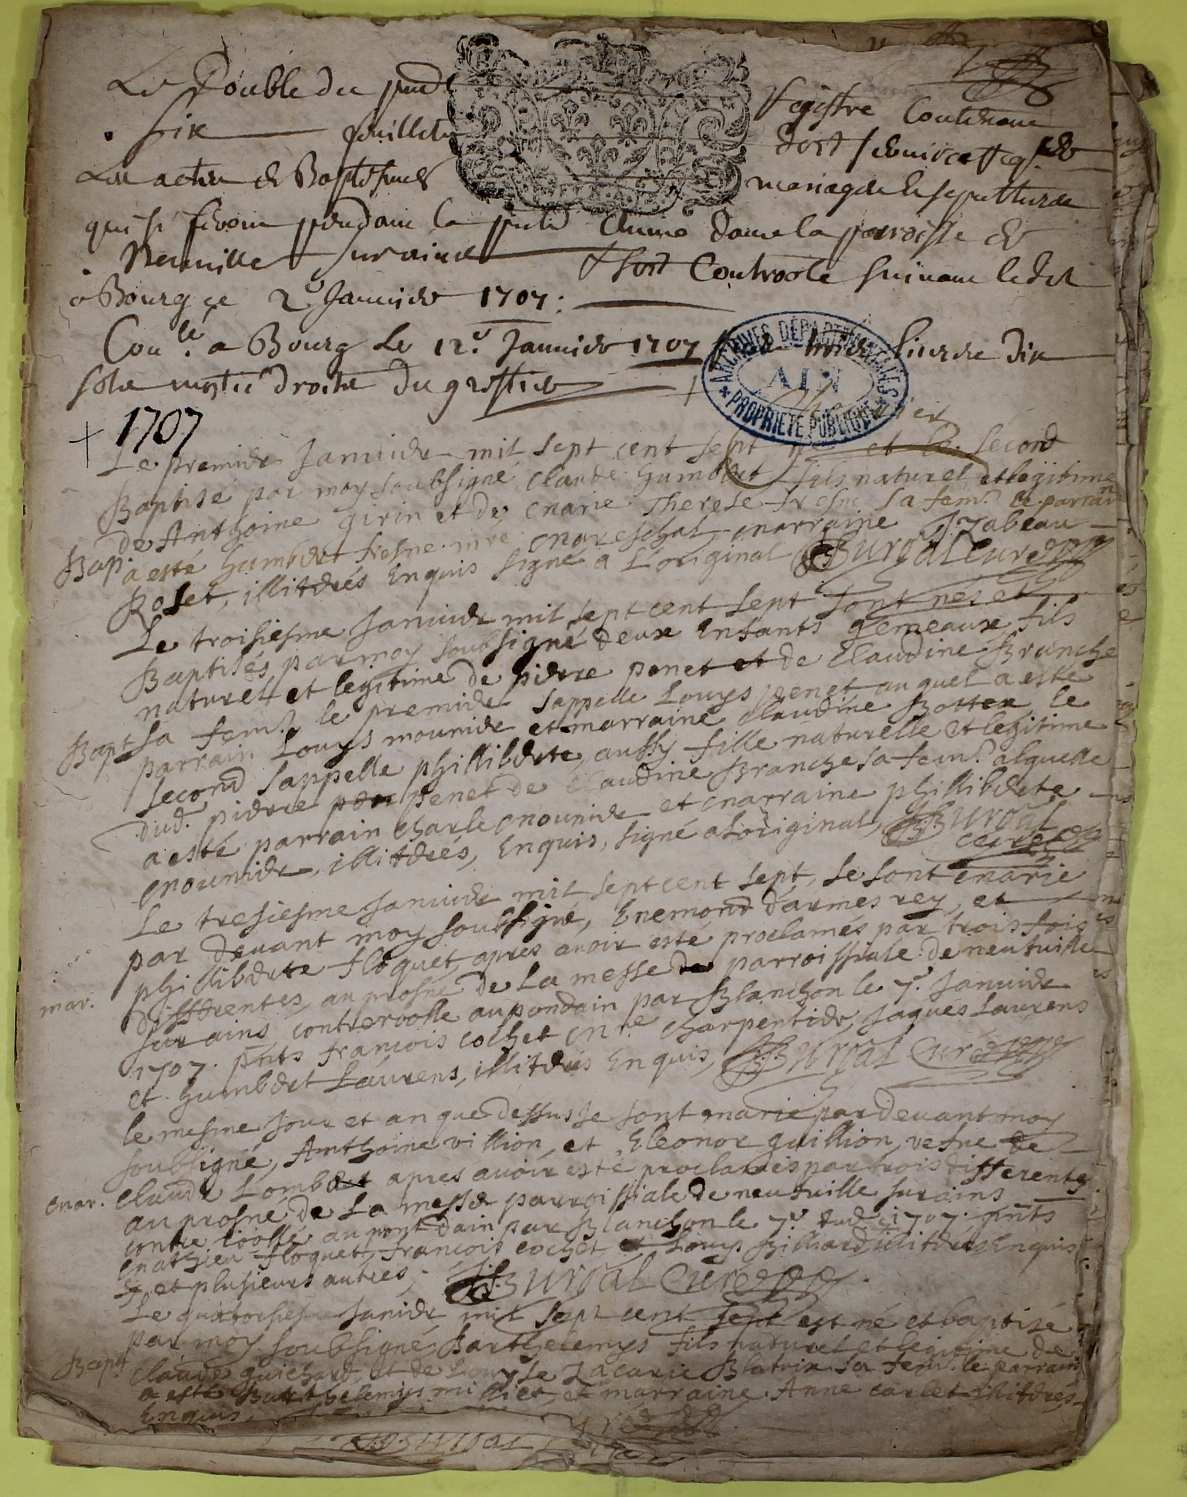 Le Double du pnt Registre Contenant
six feuillets doit servir
Les actes de Baptesmes mariages et sepultures
qui se feront pendant la pnte Année dans la parroisse de
Neuville sur ains & sera Controlé suivant ledit
a Bourg ce 2e Janvier 1707 :
Conlé a Bourg Le 12e Janvier 1707 livres dix
sols moitié droits du greffier
ARCHIVES DÉPARTEMENTALES
AIN
PROPRIÉTÉ PUBLIQUE
+ 1707
Le premier Janvier mil sept cent sept né et le second
Baptisé par moy soubsigné Claude Humbert fils naturel et legitime
de Anthoine Girin et de Marie Therese fresne sa fem. le parrain
Bap. a esté humbert fresne mre mareschal marraine Izabeau
Roset, illitérés Enquis signé a L'original Burval Curé
Le troisiesme Janvier mil sept cent sept sont nés et
Baptisés par moy soubsigné deux Enfants gemeaux fils
naturel et legitime de pierre penet et de Claudine Branche
Bapt sa fem. le premier sappelle Louys penet auquel a esté
parrain Louys mounier et marraine Claudine Bottex le
second sappelle philliberte aussy fille naturelle et legitime
dud. pierre penet de Claudine Branche sa fem. alquelle
a esté parrain charle mounier et marraine philliberte
mounier, illitérés, Enquis, signé a loriginal, Burval
curé
Le tresiesme Janvier mil sept cent sept, se sont marié
par devant moy soubsigné, Enemond d'armes rey, et
phillibérte floquet apres avoir esté proclamés par trois fois
differentes, au prosne de La messe de parroissiale de neufuille
mar. sur ains, controoolle au pondain par Blanchon le 7e. Janvier
1707. pnts francois cochet mre charpentier, Jaques Laurens
et humbert Laurens, illitérés Enquis, Burval Curé
le mesme jour et an que dessus se sont marié par devant moy
soubsigné, Anthoine villion, et Eleonor guillion, vefue de
mar. Claude Lombert apres avoir esté proclamés par trois differentes
au prosne de La messe parroissiale de neufuille sur ains
contre roollé au pont dain par Blanchon le 7e. dud. 1707. pnts
mathieu floquet, francois cochet, et Louys Billiard illitérés Enquis
et plusieurs autres, Burval Curé
Le quatorsiesme Janvier mil sept cent sept est né et baptisé
par moy soubsigné Barthelemys fils naturel et legitime de
Bapt Claude guichard et de Louyse Zacarie Blatrix sa fem. le parrain
a esté Barthelemys milliet, et marraine Anne carlet illitérés
Enquis,
Burval Curé